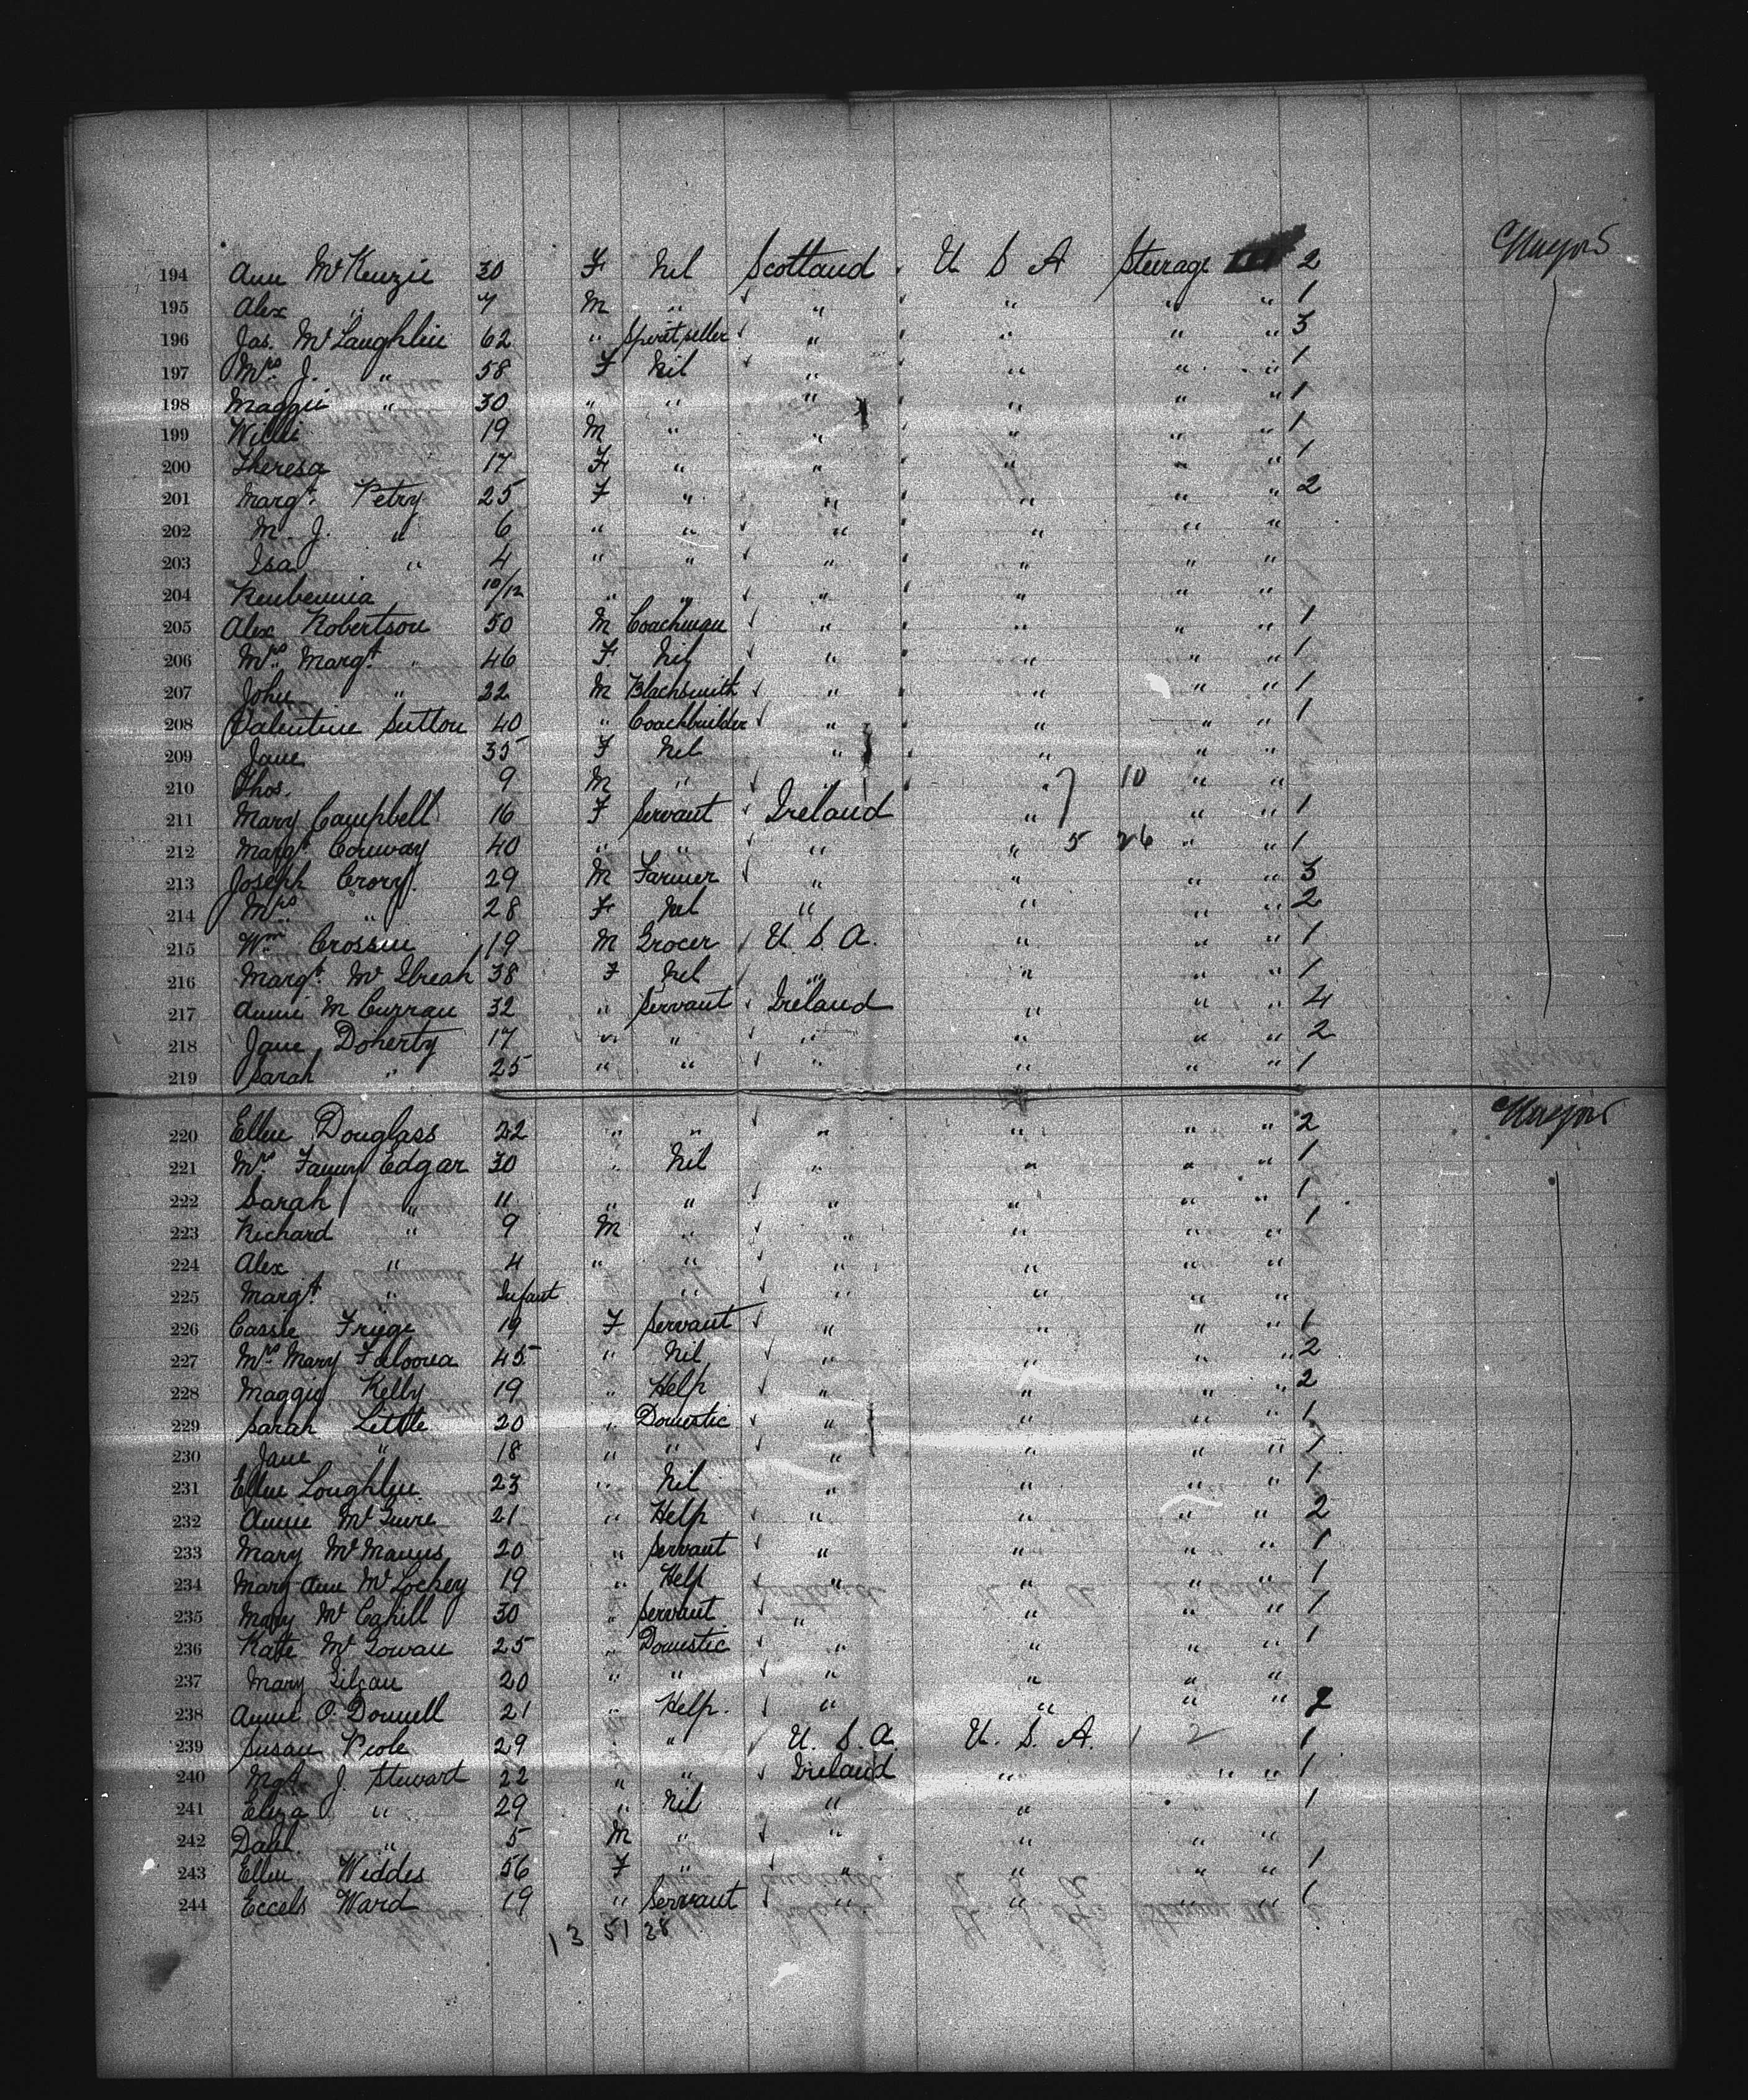 194 Ann McKenzie 30 F Nil Scotland U S A Steerage 2
195 Alex " 7 M " " " " " 1
196 Jas. McLaughlin 62 " Spirit seller " " " " 3
197 Mrs J. " 58 F Nil " " " " 1
198 Maggie " 30 " " " " " " 1
199 Willi 19 M " " " " " 1
200 Theresa 17 F " " " " " 1
201 Margt. Petry 25 F " " " " " 2
202 M. J. " 6 " " " " " "
203 Isa " 4 " " " " " "
204 10/12 " " " " " "
205 Alex Robertson 50 M Coachman " " " " 1
206 Mrs Margt. " 46 F Nil " " " " 1
207 John " 22 M Blacksmith " " " " 1
208 Valentine Sutton 40 " Coachbuilder " " " " 1
209 Jane 35 F Nil " " " "
210 Thos. 9 M " " " 10 " "
211 Mary Campbell 16 F Servant Ireland " " " 1
212 Margt. Conway 40 " " " " 5 26 " " 1
213 Joseph Crory 29 M Farmer " " " " 3
214 Mrs " 28 F Nil " " " " 2
215 Wm Crossin 19 M Grocer U. S. A. " " " 1
216 Margt. 38 F Nil " " " " 1
217 Annie M Curran 32 " Servant Ireland " " " 4
218 Jane Doherty 17 " " " " " " 2
219 Sarah " 25 " " " " " " 1
220 Ellen Douglass 22 " " " " " " 2
221 Mrs Fanny Edgar 30 " Nil " " " " 1
222 Sarah " 11 " " " " " " 1
223 Richard " 9 M " " " " " 1
224 Alex " 4 " " " " " "
225 Margt. " Infant " " " " "
226 Cassie 19 F Servant " " " " 1
227 Mrs Mary 45 " Nil " " " " 2
228 Maggie Kelly 19 " Help " " " " 2
229 Sarah Little 20 " Domestic " " " " 1
230 Jane " 18 " " " " " " 1
231 Ellen Loughlin 23 " Nil " " " " 1
232 Annie 21 " Help " " " " 2
233 Mary McManus 20 " Servant " " " " 1
234 Mary Ann 19 " Help " " " " 1
235 Mary McCahill 30 " Servant " " " " 1
236 Kate McGowan 25 " Domestic " " " " 1
237 Mary 20 " " " " " "
238 Annie O. Donnell 21 " Help. " " " " 2
239 Susan 29 " " U. S. A. U. S. A. 1 2 1
240 Mgt. J Stewart 22 " " Ireland " " " 1
241 Eliza " 29 " Nil " " 1
242 Danl. " 5 M " " " " "
243 Ellen Widdes 56 F " " " " " 1
244 Eccels Ward 19 " Servant " " " " 1
13 51 38